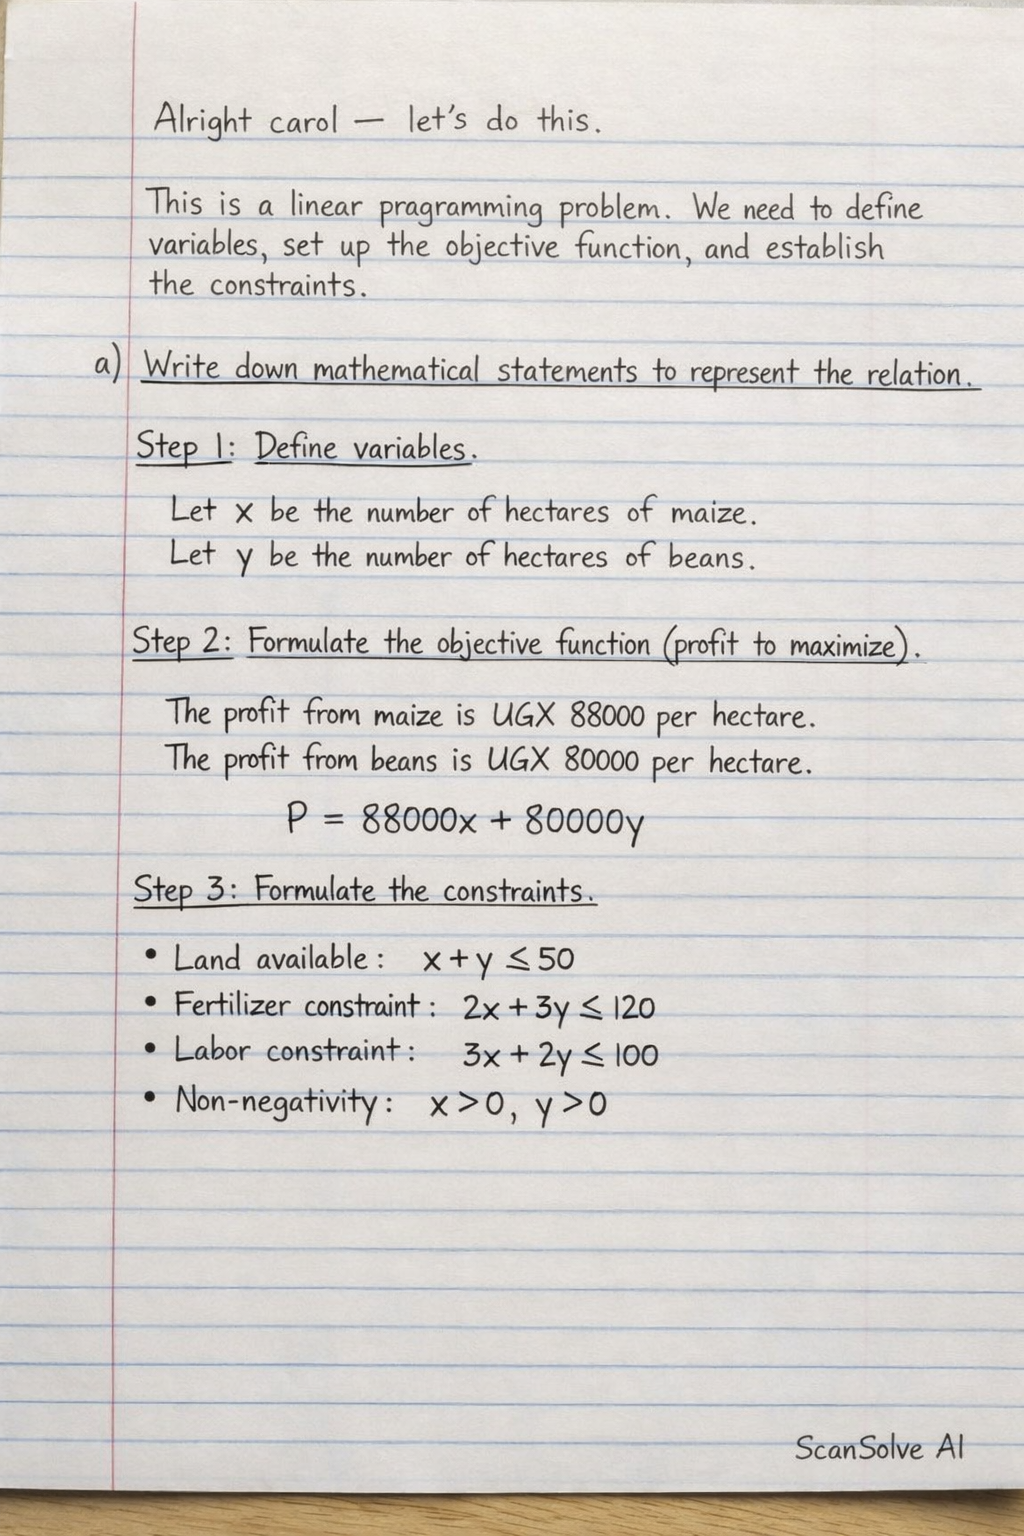 Alright carol — let's do this.
This is a linear pragramming problem. We need to define
variables, set up the objective function, and establish
the constraints.
a) Write down mathematical statements to represent the relation.
Step 1: Define variables.
Let x be the number of hectares of maize.
Let y be the number of hectares of beans.
Step 2: Formulate the objective function (profit to maximize).
The profit from maize is UGX 88000 per hectare.
The profit from beans is UGX 80000 per hectare.
P = 88000x + 80000y
Step 3: Formulate the constraints.
• Land available: x + y ≤ 50
• Fertilizer constraint: 2x + 3y ≤ 120
• Labor constraint: 3x + 2y ≤ 100
• Non-negativity: x > 0, y > 0
ScanSolve AI